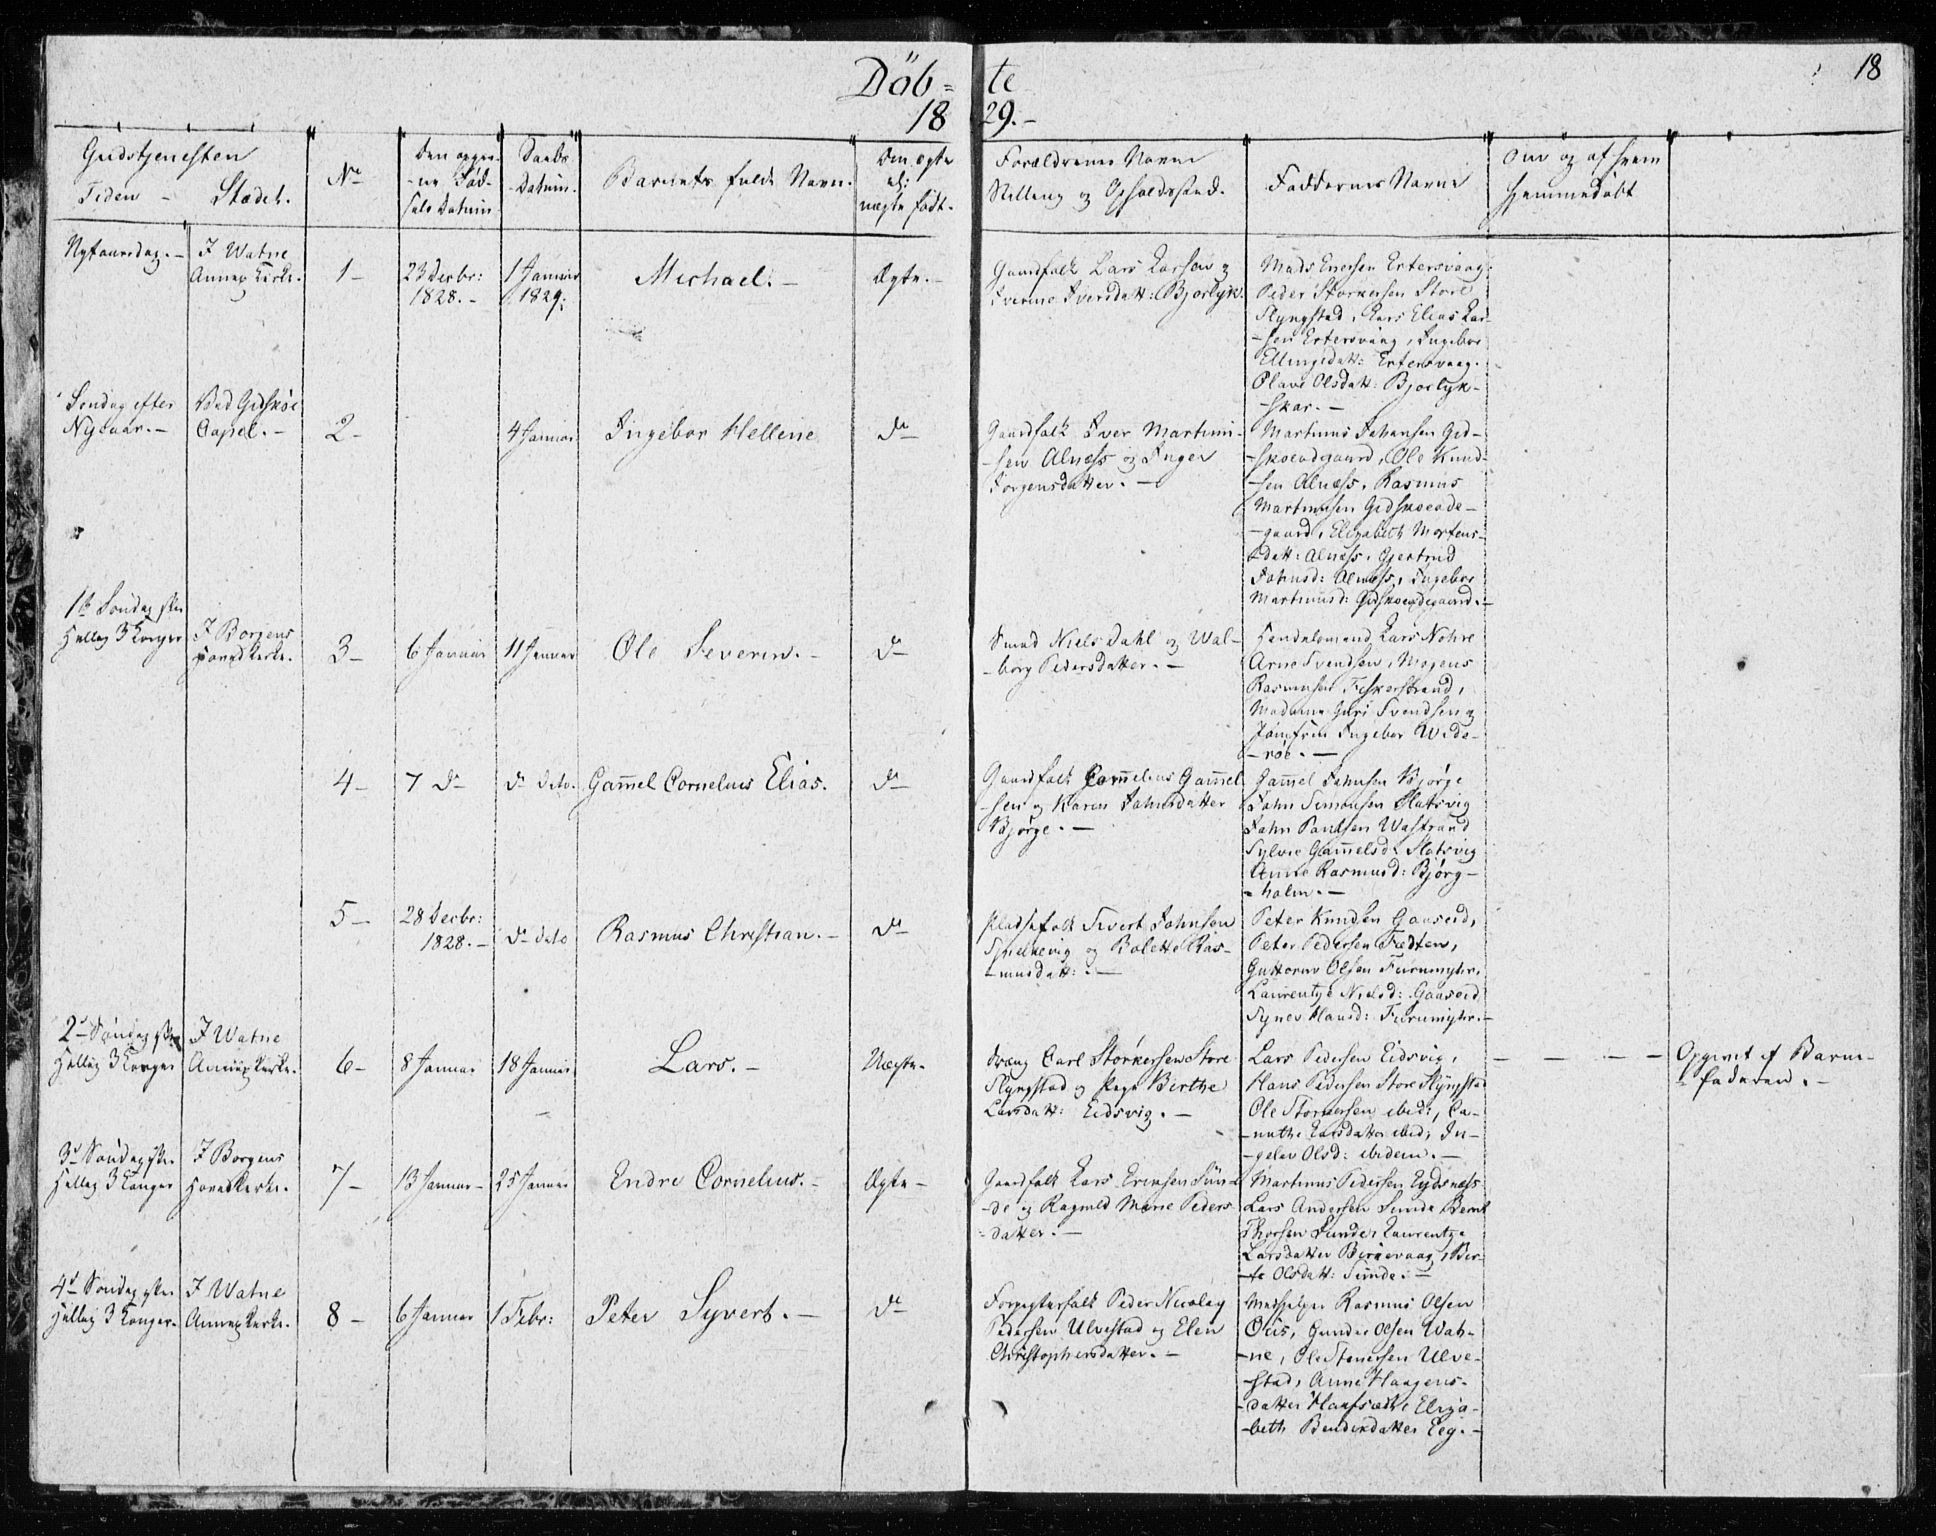 18
Döb= te
18 29.-
Gudstjenesten
Tiden - Stædet.
No
Den opgiv-
-ne Fød-
sels Datum
Daabs
-Datum.
Barnets fulde Navn.
Om ægte
el:
uægte født.
Forældrenes Navne
Stilling og Opholdssted.
Faddernes Navne
Om og af hvem
hjemmedøbt
Nytaarsdag. -
I Watne
Annex Kirke.
1-
23 Decbr:
1828. -
1 Januar
1829.
Michael. -
Ægte. -
Gaardfolk Lars Larsen og
Iverine Iversdatt: Bjørlyk.
Mads Enersen Ertersvaag.
Peder Storkersen Store
Slyngstad, Lars Elias Lar-
-sen Ertersvaag, Ingebor
Ellingsdatt: Ertersvaag.
Olave Olsdatt: Bjørlyk-
-skar. -
Søndag efter
Nytaar. -
Ved Gidskøe
Capel. -
2-
4 Januar
Ingebor Hellene
Do
Gaardfolk Iver Martini-
-sen Alnæss og Inger
Jørgensdatter. -
Martinus Johansen Gid-
-skoeodegaard, Ole Knud-
-sen Alnæss, Rasmus
Martinussen Gidskoeode-
-gaard, Elizabeth Mortens-
-datt: Alnæss, Gjertrud
Johnsd: Alnæss, Ingebor
Martinusd: Gidskoeodegaard. -
1ste Søndag efter
Hellig 3 Konger
I Borgens
Hovedkirke.
3-
6 Januar
11 Januar
Ole Severin. -
Do
Smed Niels Dahl og Wal-
-borg Pedersdatter. -
Handelsmand Lars Nohre
Arne Svendsen, Mogens
Rasmusen Fiskerstrand,
Madame Guri Svendsen og
Jomfrue Ingebor Wide-
-röe. -
4-
7 Do
Do dato.
Gam̄el Cornelius Elias.
Do
Gaardfolk Cornelius Gam̄el
-sen og Karen Johnsdatter
Bjørge. -
Gam̄el Johnsen Bjørge
John Simonsen Slatsvig
John Paulsen Wastrand
Sylvie Gam̄elsd: Slatsvig
Anne Rasmusd: Bjørg-
-holm. -
5-
28 Decbr:
1828. -
Do dato
Rasmus Christian. -
Do
Pladsefolk Sivert Johnsen
Spielkevig og Bolette Ras-
-musdatt: -
Peter Knudsen Gaaseid,
Peter Pedersen Fedten,
Guttorm Olsen Furumyhr,
Laurentze Nielsd: Gaaseid
Synev Hansd: Furumyhr. -
2den Søndag efter
Hellig 3 Konger
I Watne
Annex Kirke.
6-
8 Januar
18 Januar
Lars. -
Uægte.
Dreng Carl Storkersen Store
Slyngstad og Pige Birthe
Larsdatt: Eidsvig. -
Lars Pedersen Eidsvig,
Hans Pedersen Store Slyngstad
Ole Storkersen ibid:, Ca-
-nuthe Larsdatter ibid, In-
-gelev Olsd: ibidem. -
- - - -
Opgivet af Barne-
-faderen. -
3die Søndag efter
Hellig 3 Konger
I Borgens
Hovedkirke.
7-
13 Januar -
25 Januar
Endre Cornelius. -
Ægte -
Gaardfolk Lars Erichsen Sun-
-de og Ragnild Marie Peders
-datter. -
Martinus Pedersen Eydsnæss
Lars Andersen Sunde Bernt
Thorsen Sunde, Laurentze
Larsdatter Birkevaag, Bir-
-te Olsdatt: Sunde. -
4de Søndag efter
Hellig 3 Konger.
I Watne
Annex Kirke.
8 -
6 Januar
1 Febr:
Peter Syvert. -
Do
Forpagterfolk Peder Nicolay
Pedersen Ulvestad og Elen
Christophersdatter. -
Medhjelper Rasmus Olsen
Olsen Wat-
-ne, Ole Ulve-
-stad, Anne Haagens-
-datter Eliza-
-beth Eeg. -